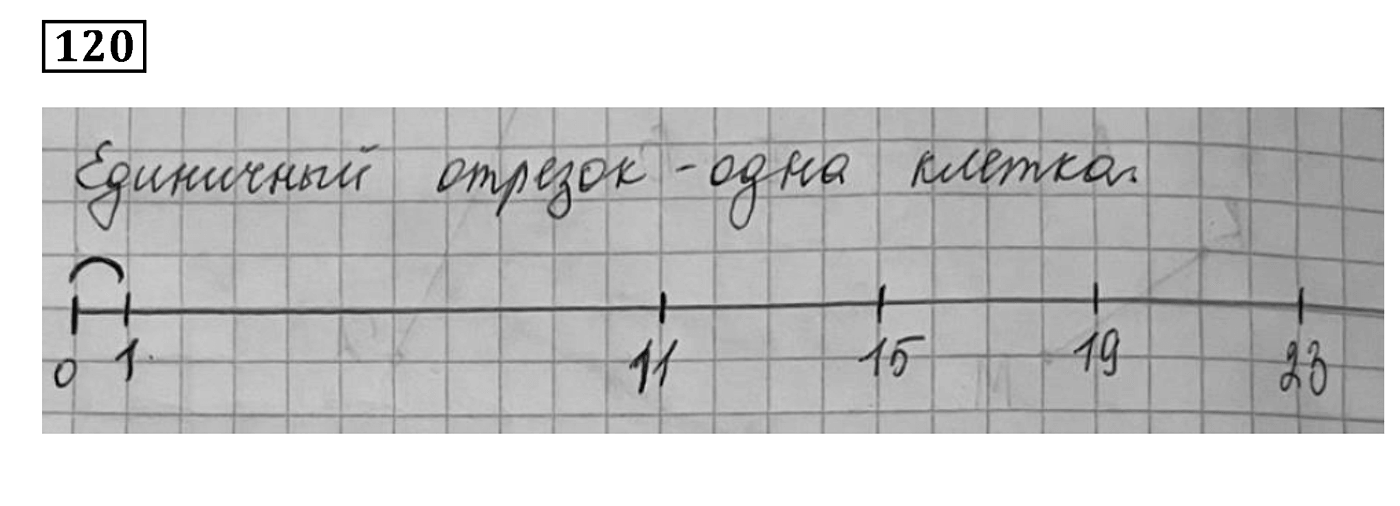 120
Единичный отрезок - одна клетка.
0 1 11 15 19 23